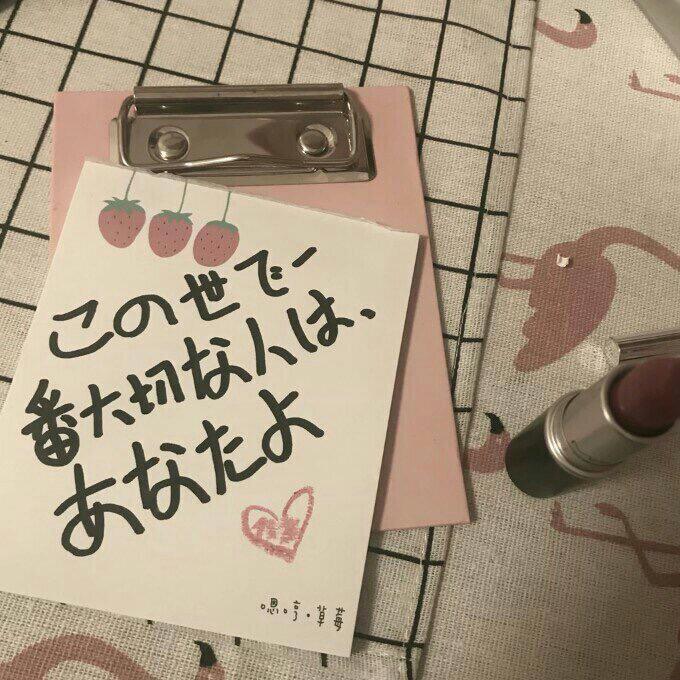 この世で一
番大切な人は、
あなたよ
嗯哼·草莓